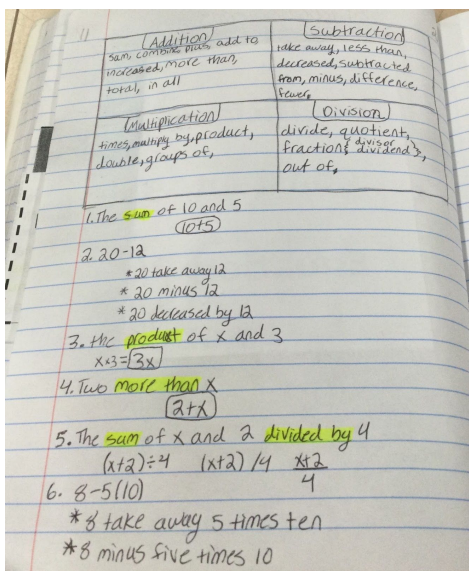 Addition
sum, combine, plus, add to,
increased, more than,
total, in all
Subtraction
take away, less than,
decreased, subtracted
from, minus, difference,
fewer,
Multiplication
times, multiply by, product,
double, groups of,
Division
divide, quotient,
fraction { divisor
dividend },
out of,
1. The sum of 10 and 5
10+5
2. 20-12
*20 take away 12
* 20 minus 12
* 20 decreased by 12
3. the product of x and 3
x×3=3x
4. Two more than x
2+x
5. The sum of x and 2 divided by 4
(x+2)÷4 (x+2)/4 x+2
4
6. 8-5(10)
*8 take away 5 times ten
*8 minus five times 10